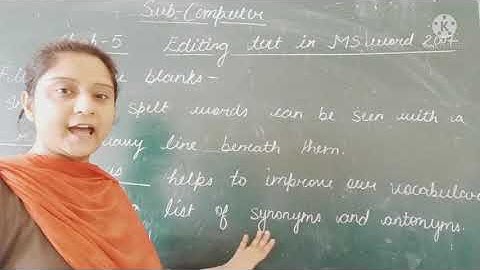 Sub-Computer
-5 Editing text in MS word 2007
blanks-
spelt words can be seen with a
line beneath them.
helps to improve our vocabulary
list of synonyms and antonyms.